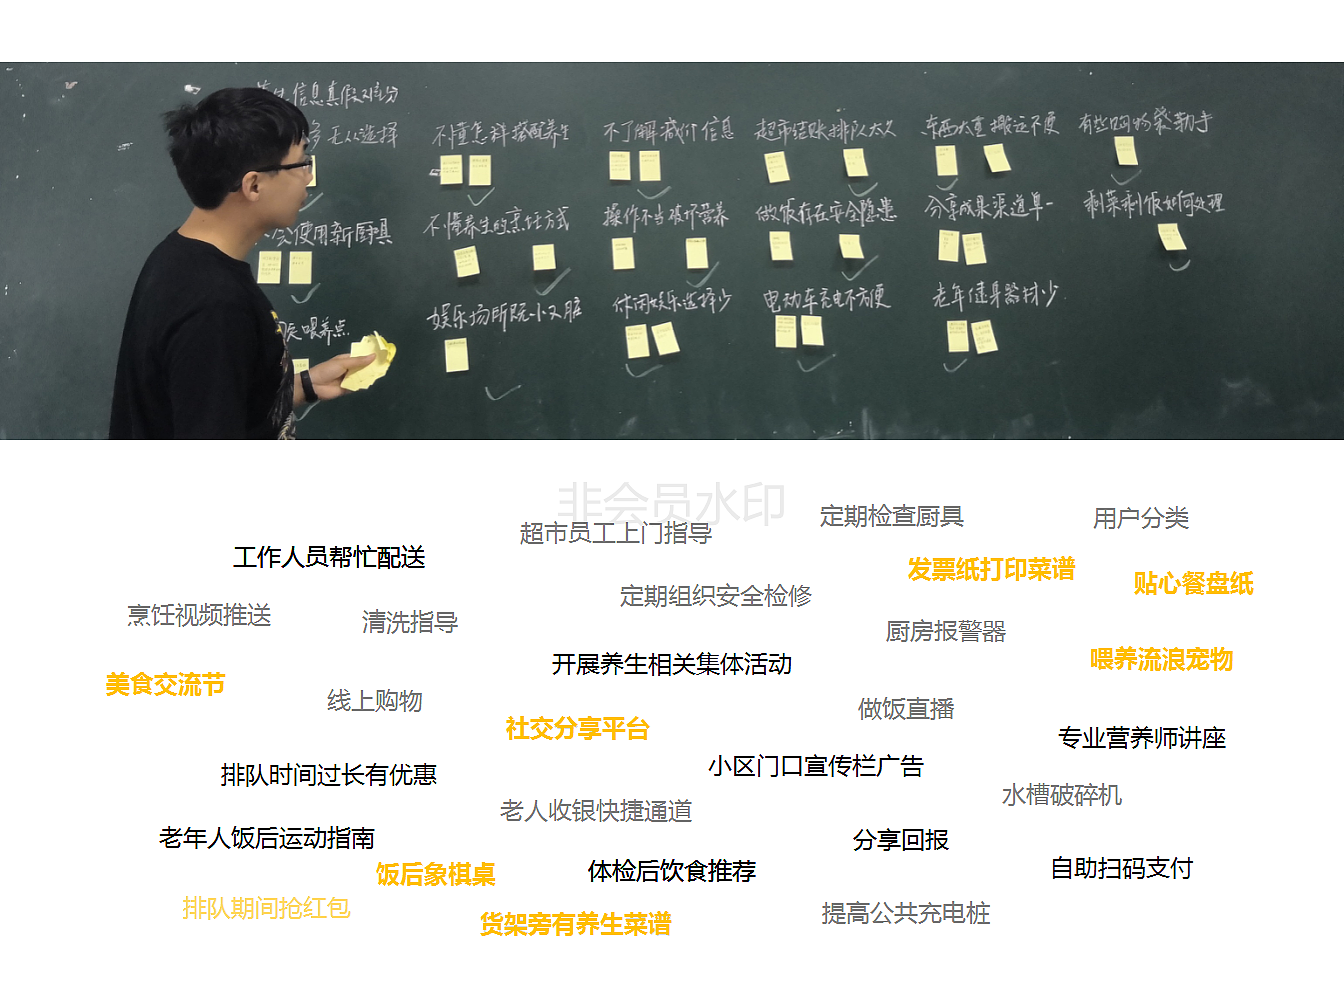 信息真假难分
多 无从选择
不懂怎样搭配养生
不了解减价信息
超市结账排队太久
东西太重搬运不便
有些购物袋勒手
会使用新厨具
不懂养生的烹饪方式
操作不当破坏营养
做饭存在安全隐患
分享成果渠道单一
剩菜剩饭如何处理
喂养点
娱乐场所既小又脏
休闲娱乐选择少
电动车充电不方便
老年健身器材少
非会员水印
超市员工上门指导
定期检查厨具
用户分类
工作人员帮忙配送
发票纸打印菜谱
贴心餐盘纸
定期组织安全检修
烹饪视频推送
清洗指导
厨房报警器
开展养生相关集体活动
喂养流浪宠物
美食交流节
线上购物
做饭直播
社交分享平台
专业营养师讲座
排队时间过长有优惠
小区门口宣传栏广告
水槽破碎机
老人收银快捷通道
老年人饭后运动指南
分享回报
饭后象棋桌
体检后饮食推荐
自助扫码支付
排队期间抢红包
货架旁有养生菜谱
提高公共充电桩